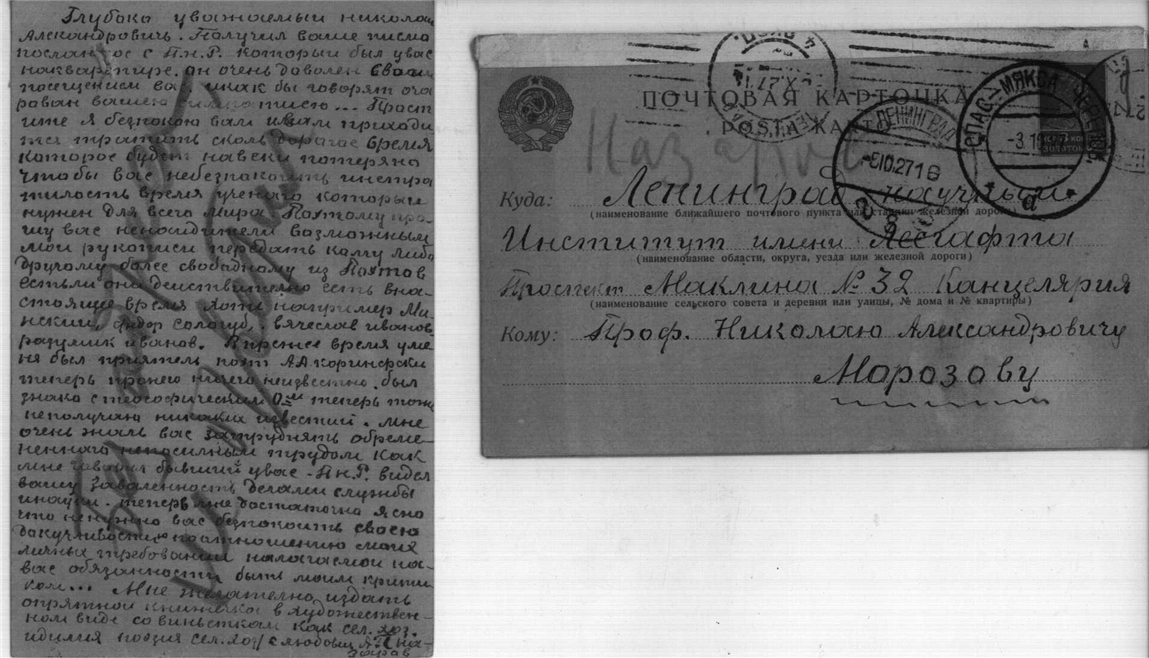 Глубоко уважаемый николай
Александровичь. Получил ваше писмо
посланное с П.н.Р. который был увас
наквартире. он очень доволен своим
посещением вас, и как бы говорят оча
рован вашею ... Прост
ите я безпокою вам ивам приходи
тся тратить сколь дорагое время
которое будет навеки потеряно
чтобы вас небезпакоить инстра
тилость время ученаго которыи
нужен для всего мира. Поэтому про
шу вас ненайдители возможным
мои рукописи передать кому либо
другому более свободному из Поэтов
естьли они деиствително есть вна-
стоящие время хотя например Ми-
нский, федор сологуб, вячеслав иванов,
разумник иванов. Впрежнее время уме
ня был приятель поэт А.А коринфски
теперь пронего ничего неизвестно. был
знаком с теософическим О-м теперь тоже
неполучаю никаких известий. мне
очень жаль вас затруднять обреме-
неннаго непосилным трудом как
мне гаварил бывший увас - П.н.Р. видел
вашу заваленность делами службы
инауки. теперь мне достаточна ясно
что ненужно вас безпокоить своею
докучливостию поотношению моих
личных требований налагаемой на-
вас обязанности быть моим крити
ком... Мне желателно издать
опрятной книжкой в художествен-
ном виде со виньетками как сел. хоз.
идилия поэзия сел. хоз. с любовию На-
заров
ПОЧТОВАЯ КАРТОЧКА
POŜTA KARTO
Назаров
ЛЕНИНГРАД
Куда: Ленинград научный
(наименование ближайшего почтового пункта или станции железной дороги)
Институт имени Лесгафта
(наименование области, округа, уезда или железной дороги)
Проспект Маклина № 32 Канцелярия
(наименование сельского совета и деревни или улицы, № дома и № квартиры)
Кому: Проф. Николаю Александровичу
Морозову